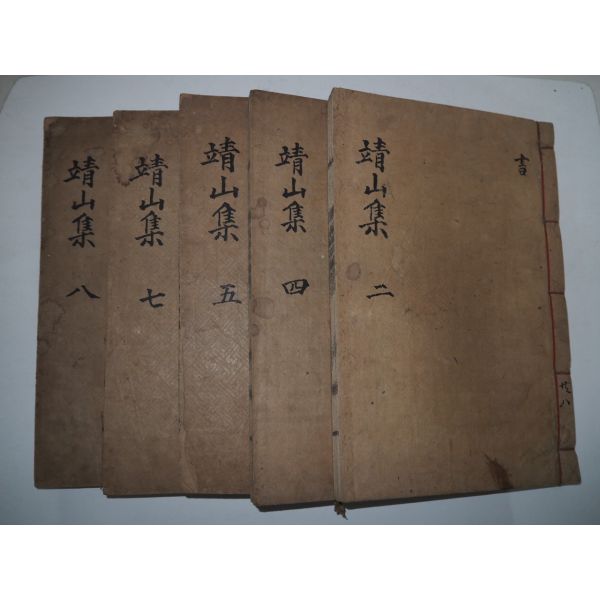 靖山集 二
書
共八
靖山集 四
靖山集 五
靖山集 七
靖山集 八